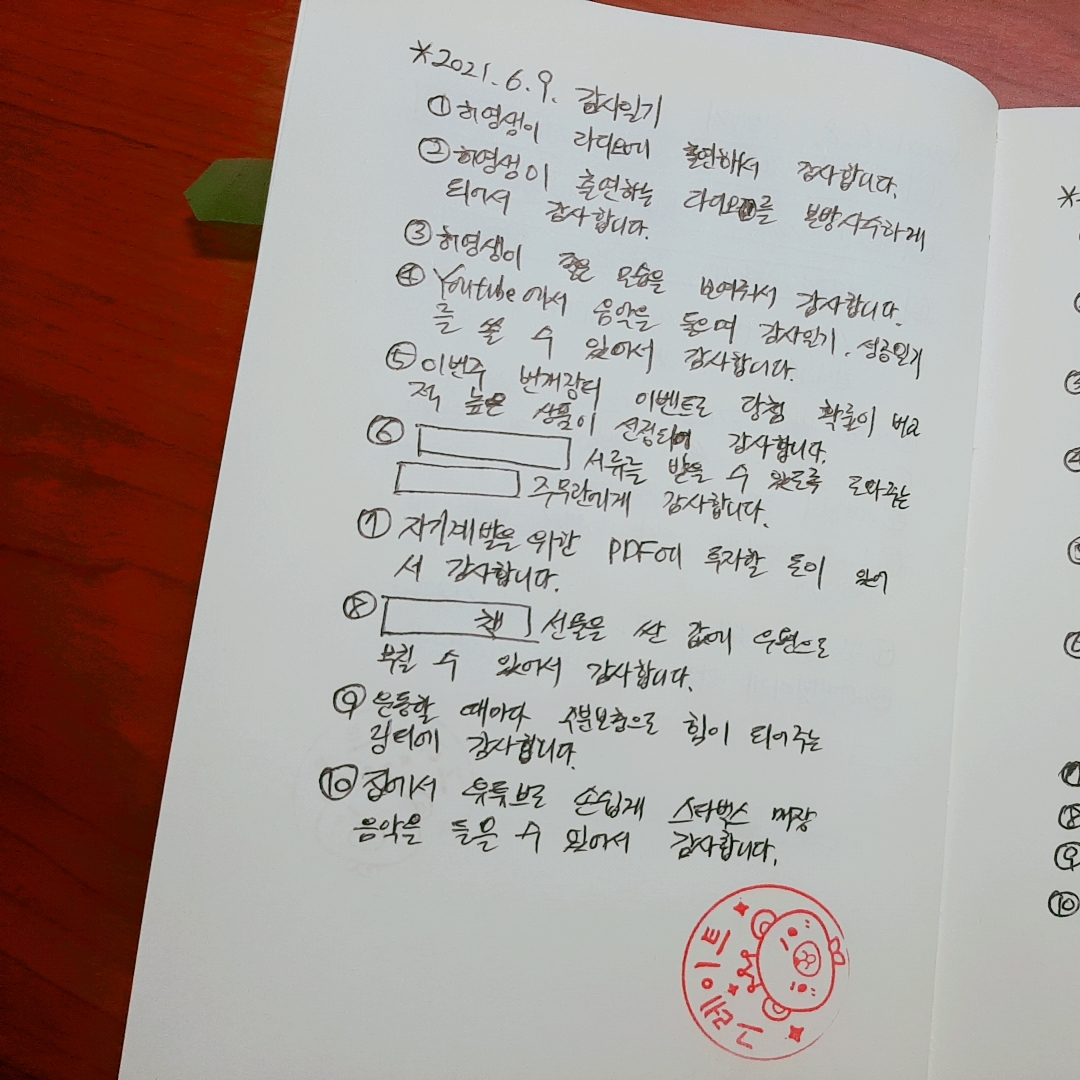 *2021.6.9. 감사일기
① 허영생이 라디오에 출연해서 감사합니다.
② 허영생이 출연하는 라디오를 본방사수하게
되어서 감사합니다.
③ 허영생이 모습을 보여줘서 감사합니다.
④ Youtube에서 음악을 들으며 감사일기, 성공일기
를 쓸 수 있어서 감사합니다.
⑤ 이번주 번개장터 이벤트로 당첨 확률이 비교
적 높은 상품이 선정되어 감사합니다.
⑥ 서류를 받을 수 있도록 도와주는
주무관에게 감사합니다.
⑦ 자기계발을 위한 PDF에 투자할 돈이 있어
서 감사합니다.
⑧ 책 선물을 싼 값에 우편으로
부칠 수 있어서 감사합니다.
⑨ 운동할 때마다 수분보충으로 힘이 되어주는
링티에 감사합니다.
⑩ 집에서 유튜브로 손쉽게 스타벅스 매장
음악을 들을 수 있어서 감사합니다.
그레이트
*
⑧
⑨
⑩